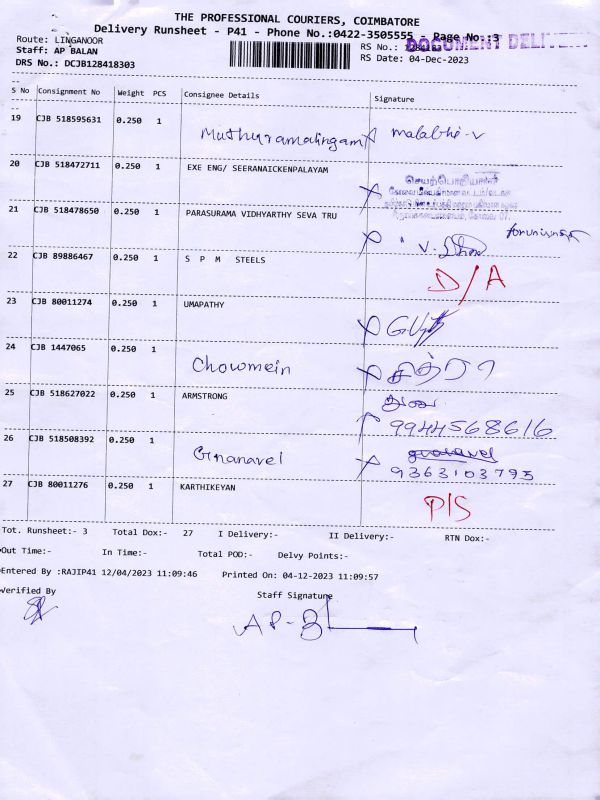 THE PROFESSIONAL COURIERS, COIMBATORE
Delivery Runsheet - P41 - Phone No.:0422-3505555 - Page No.:3
Route: LINGANOOR RS No.: 1284183
Staff: AP BALAN RS Date: 04-Dec-2023
DRS No.: DCJB128418303
DOCUMENT DELIVE
S No Consignment No Weight PCS Consignee Details Signature
19 CJB 518595631 0.250 1 Muthuramalingam malabhi-v
20 CJB 518472711 0.250 1 EXE ENG/ SEERANAICKENPALAYAM
செயற்பொறியாளர்
21 CJB 518478650 0.250 1 PARASURAMA VIDHYARTHY SEVA TRU
22 CJB 89886467 0.250 1 S P M STEELS D/A
23 CJB 80011274 0.250 1 UMAPATHY
24 CJB 1447065 0.250 1 Chowmein சித்ரா
25 CJB 518627022 0.250 1 ARMSTRONG
9944568616
26 CJB 518508392 0.250 1 Gnanavel
9363103795
27 CJB 80011276 0.250 1 KARTHIKEYAN P/S
Tot. Runsheet:- 3 Total Dox:- 27 I Delivery:- II Delivery:- RTN Dox:-
Out Time:- In Time:- Total POD:- Delvy Points:-
Entered By :RAJIP41 12/04/2023 11:09:46 Printed On: 04-12-2023 11:09:57
Verified By Staff Signature
AP-B